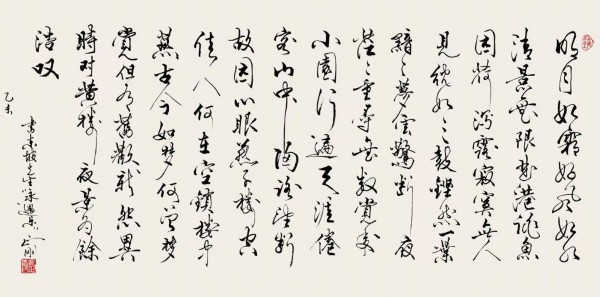 明月如霜好风如水
清景無限曲港跳魚
圓荷瀉露寂寞無人
見紞如三鼓鏗然一葉
黯々夢雲驚斷夜
茫々重尋無處覺來
小園行遍天涯倦
客山中歸路望斷
故園心眼燕子樓空
佳人何在空鎖樓中
燕古今如夢何曾夢
覺但有舊歡新怨異
時對黃樓夜景為餘
浩叹
乙未
書東坡先生永遇樂